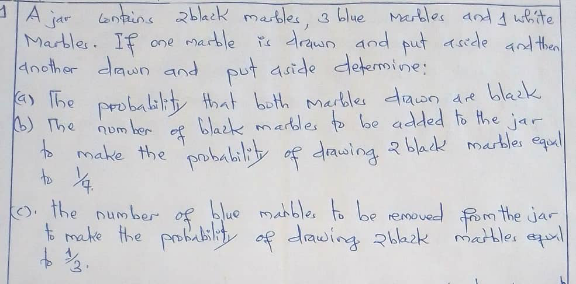 1 A jar contains 2black marbles, 3 blue Marbles and 1 white
Marbles. If one marble is drawn and put aside and then
another drawn and put aside determine:
(a) The probability that both Marbles drawn are black
(b) The number of black marbles to be added to the jar
to make the probability of drawing 2 black marbles equal
to 1/4.
(c). the number of blue marbles to be removed from the jar
to make the probability of drawing 2black marbles equal
to 1/3.